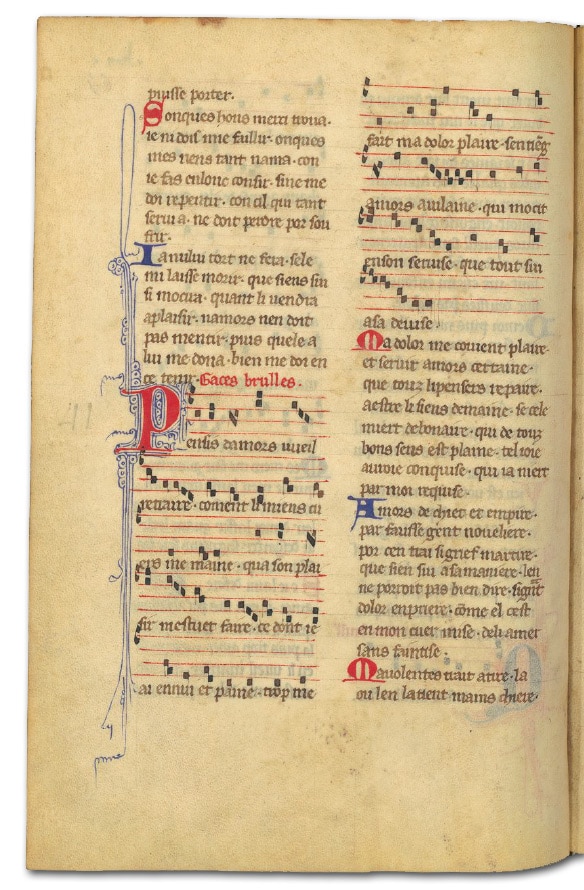 puisse porter.
Sonques hons merci trova.
ie ni doi mie faillir. onques
mes riens tant nama. con
ie fas cui ione consir. sine me
doi repentir. con cil qui tant
servi a. ne doit perdre por son
frir.
Ia nului tort ne fera. sele
mi laisse morir. que siens sui
si mocirra. quant li vendra
a plaisir. namors nen doit
pas mentir. puis quele a
lui me dona. bien me doi en
ce tenir. Gaces brulles.
Pensis damors vueil
retraire. coment li miens cu
ers me maine. qua son plai
sir mestuet faire. ce dont ie
ai ennui et paine. trop me
fait ma dolor plaire. sen tieg
amors a vilaine. qui mocit
en son servise. que tout sui
a sa devise.
Ma dolor me covient plaire.
et servir amors certaine.
que touz li pensers repaire.
a estre li siens demaine. se cele
mert debonaire. qui de touz
bons sens est plaine. tel ioie
avroie conquise. qui ia niert
par moi requise.
Amors dechiet et empire.
par fausse gent noveliere.
por cen trai si grief martire.
que sien sui a sa maniere. len
ne porroit pas bien dire. si gint
dolor en priere. come el cest
en mon cuer mise. de li amer
sans faintise.
Mauvolentes trait a tire. la
ou len latient mains chiere.